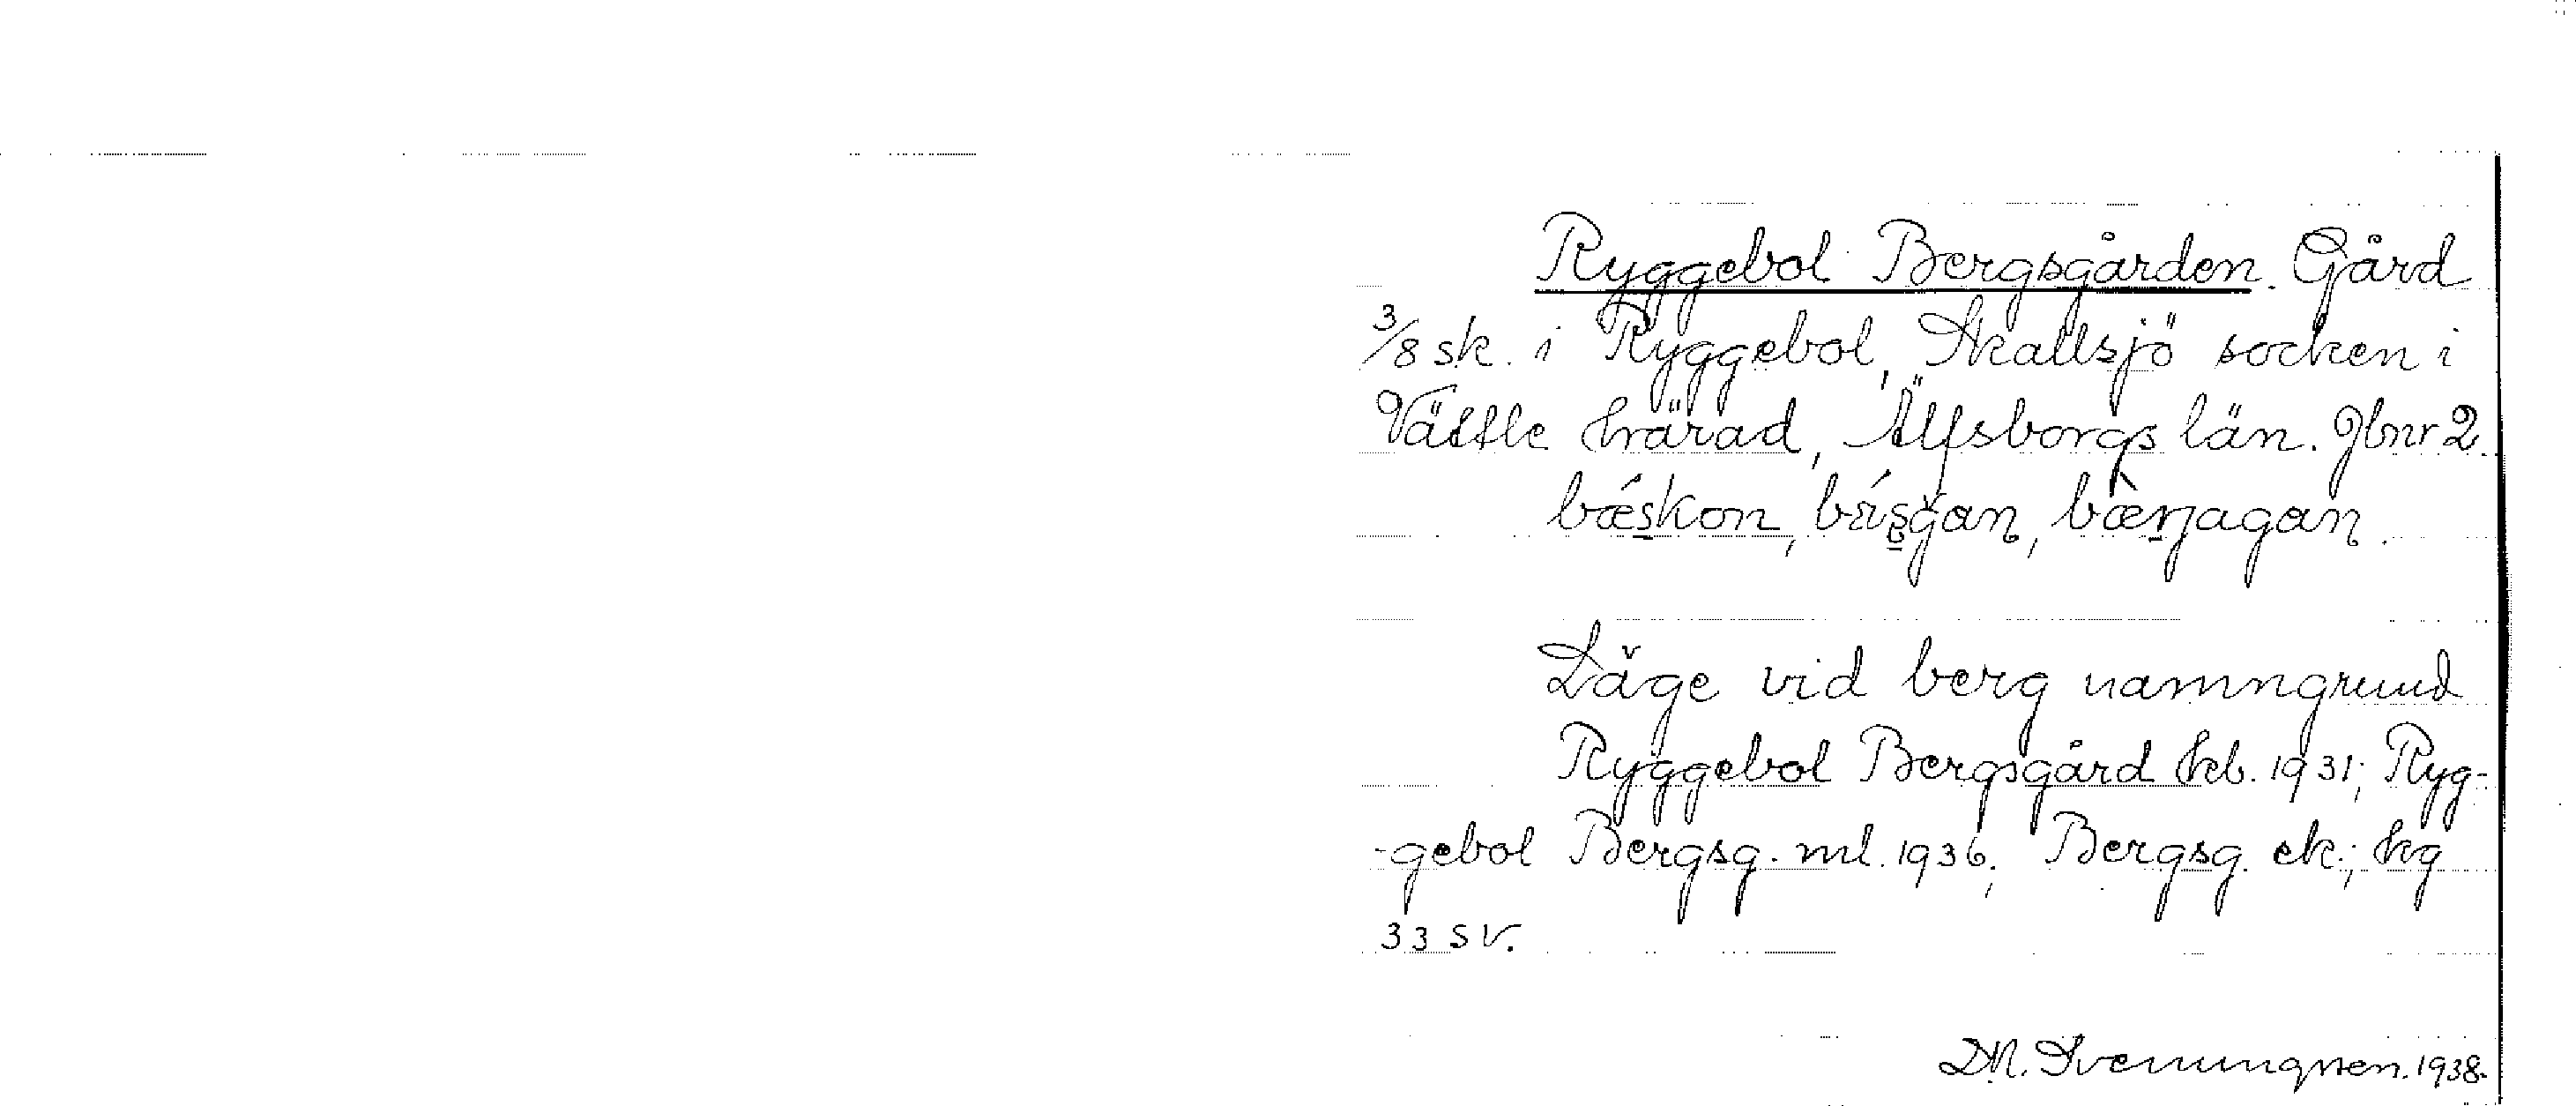 Ryggebol Bergsgården. Gård
3/8 sk. i Ryggebol, Skallsjö socken i
Vättle härad, Älfsborgs län. Jbnr 2.
bǽskon, bærjagan.
Läge vid berg namngrund
Ryggebol Bergsgård kb. 1931; Ryg-
-gebol Bergsg. ml. 1936; Bergsg. ek.; hg
33 SV.
D.N. Svenningsen. 1938.